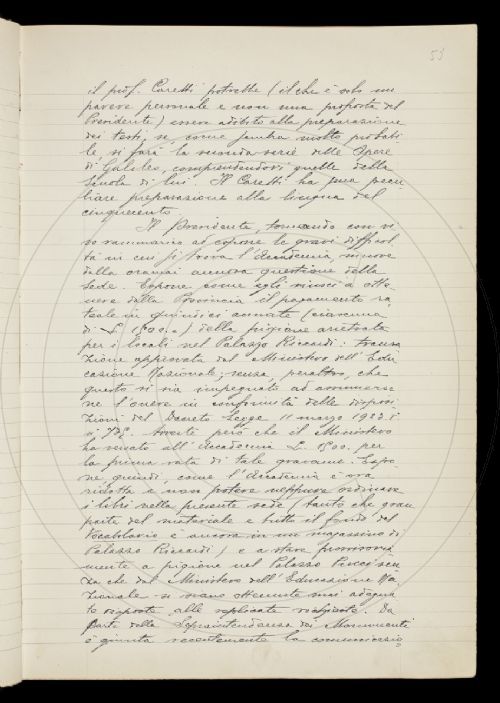 53
il prof. Caretti potrebbe (il che è solo un
parere personale e non una proposta del
Presidente) essere adibito alla preparazione
dei testi, se, come sembra molto probabi
le si farà la seconda serie delle Opere
di Galileo, comprendendovi quelle della
Scuola di lui. Il Caretti ha pura pecu
liare preparazione alla lingua del
cinquecento.
Il Presidente, tornando con vi
so rammarico ad esporre le gravi difficol
tà in cui si trova l'Accademia, muove
dalla oramai annosa questione della
Sede. Espone come egli riuscì a otte-
nere dalla Provincia il pagamento ra
teale in quindici annate (ciascuna
di L. 1500.=) della pigione arretrata
per i locali nel Palazzo Riccardi: transa
zione approvata dal Ministero dell'Edu
cazione Nazionale; senza, peraltro, che
questo si sia impegnato ad assumersi
ne l'onere in conformità delle disposi
zioni del Decreto-Legge 11 marzo 1923
Avverte però che il Ministero
ha versato all'Accademia L. 1500. per
la prima rata di tale gravame. Espo-
ne quindi, come l'Accademia è ora
ridotta a non potere neppure ordinare
i libri nella presente sede (tanto che gran
parte del materiale e tutto il fondo del
Vocabolario è ancora in un magazzino di
Palazzo Riccardi) e a stare provvisoria
mente a pigione nel Palazzo Pucci sen
za che dal Ministero dell'Educazione Na
zionale si siano ottenute mai adegua
te risposte alle replicate richieste. Da
parte della Soprintendenza dei Monumenti
è giunta recentemente la comunicazio